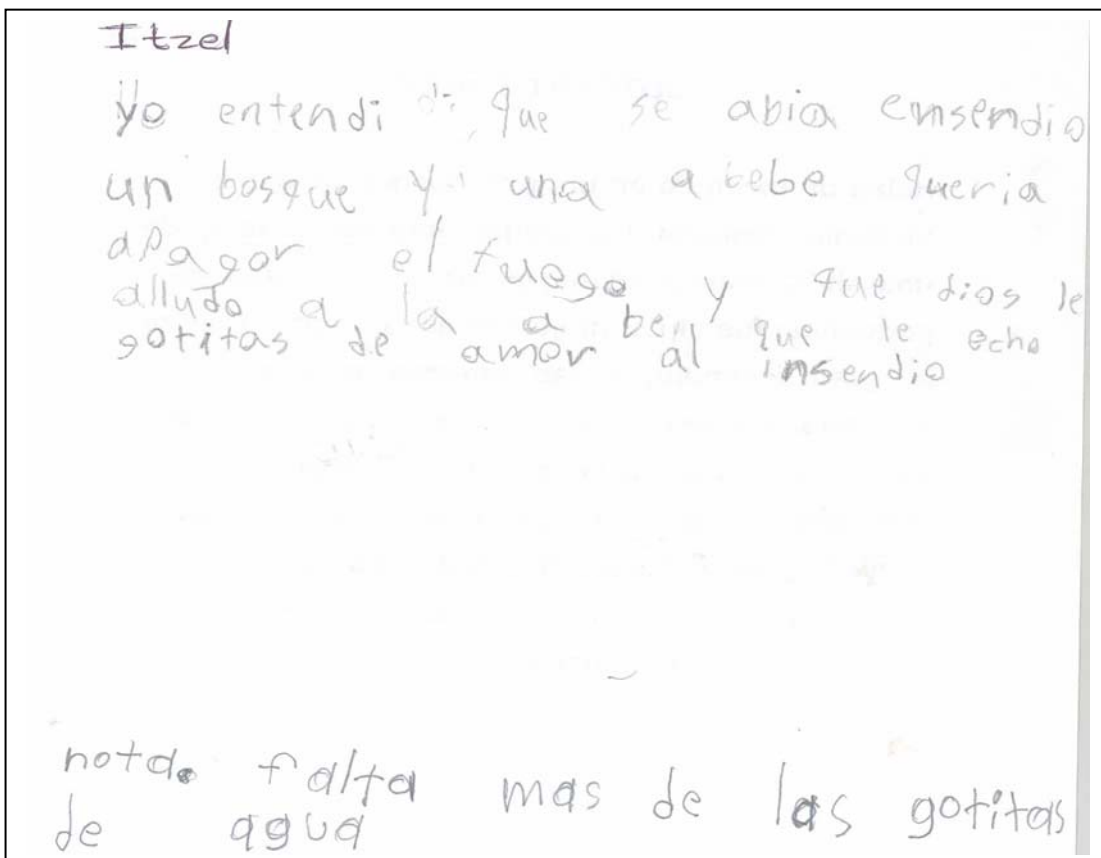 Itzel
yo entendi di que se abia ensendio
un bosque y una abebe queria
apagar el fuego y que dios le
alludo a la abe y que le echo
gotitas de amor al insendio
nota. falta mas de las gotitas
de agua